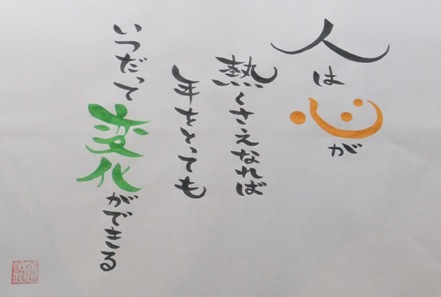 人は心が
熱くさえなれば
年をとっても
いつだって変化ができる